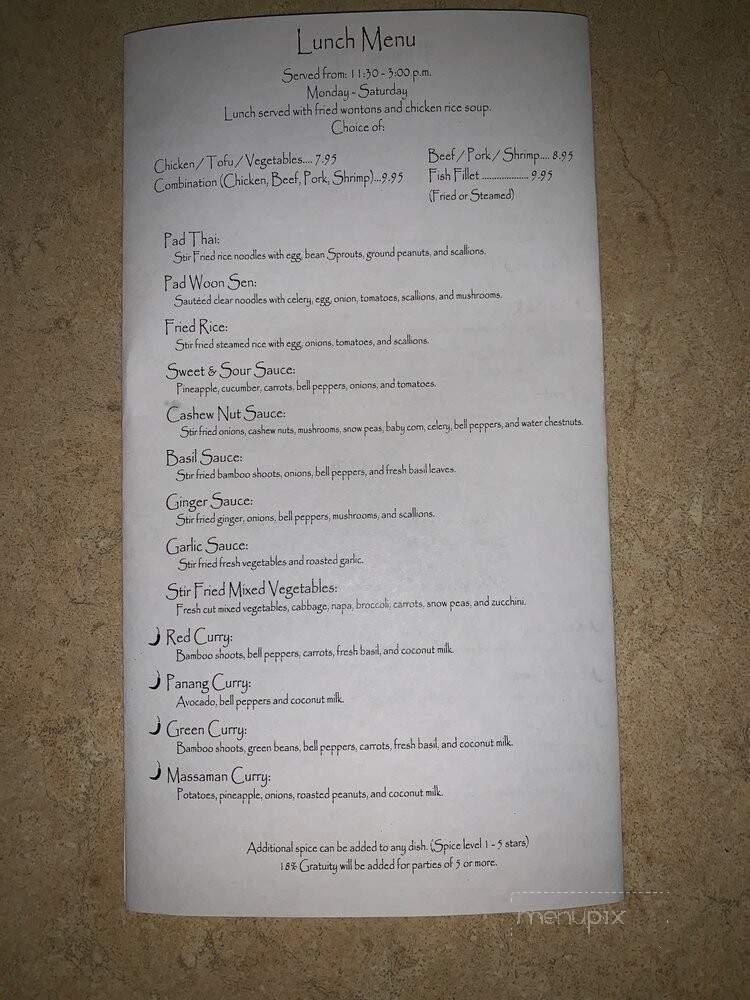 Lunch Menu
Served from: 11:30 - 3:00 p.m.
Monday - Saturday
Lunch served with fried wontons and chicken rice soup.
Choice of:
Chicken / Tofu / Vegetables.... 7.95
Combination (Chicken, Beef, Pork, Shrimp)...9.95
Beef / Pork / Shrimp.... 8.95
Fish Fillet ................... 9.95
(Fried or Steamed)
Pad Thai:
Stir Fried rice noodles with egg, bean Sprouts, ground peanuts, and scallions.
Pad Woon Sen:
Sautéed clear noodles with celery, egg, onion, tomatoes, scallions, and mushrooms.
Fried Rice:
Stir fried steamed rice with egg, onions, tomatoes, and scallions.
Sweet & Sour Sauce:
Pineapple, cucumber, carrots, bell peppers, onions, and tomatoes.
Cashew Nut Sauce:
Stir fried onions, cashew nuts, mushrooms, snow peas, baby corn, celery, bell peppers, and water chestnuts.
Basil Sauce:
Stir fried bamboo shoots, onions, bell peppers, and fresh basil leaves.
Ginger Sauce:
Stir fried ginger, onions, bell peppers, mushrooms, and scallions.
Garlic Sauce:
Stir fried fresh vegetables and roasted garlic.
Stir Fried Mixed Vegetables:
Fresh cut mixed vegetables, cabbage, napa, broccoli, carrots, snow peas, and zucchini.
Red Curry:
Bamboo shoots, bell peppers, carrots, fresh basil, and coconut milk.
Panang Curry:
Avocado, bell peppers and coconut milk.
Green Curry:
Bamboo shoots, green beans, bell peppers, carrots, fresh basil, and coconut milk.
Massaman Curry:
Potatoes, pineapple, onions, roasted peanuts, and coconut milk.
Additional spice can be added to any dish. (Spice level 1 - 5 stars)
18% Gratuity will be added for parties of 5 or more.
menupix